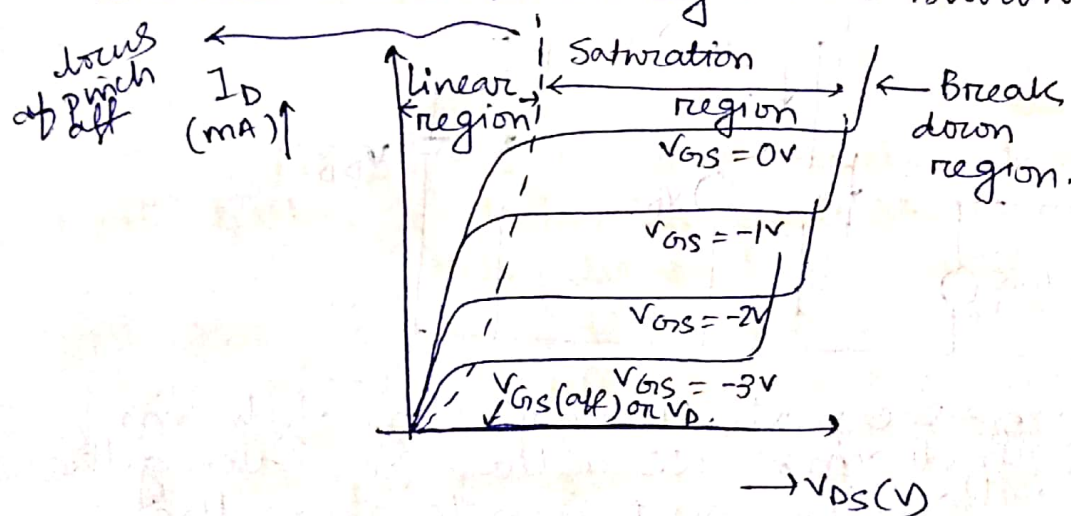 locus
of Pinch
off
I_D
(mA)↑
Linear
region
Saturation
region
← Break
down
region.
V_GS = 0V
V_GS = -1V
V_GS = -2V
V_GS = -3V
V_GS(off) or V_P.
→ V_DS(V)